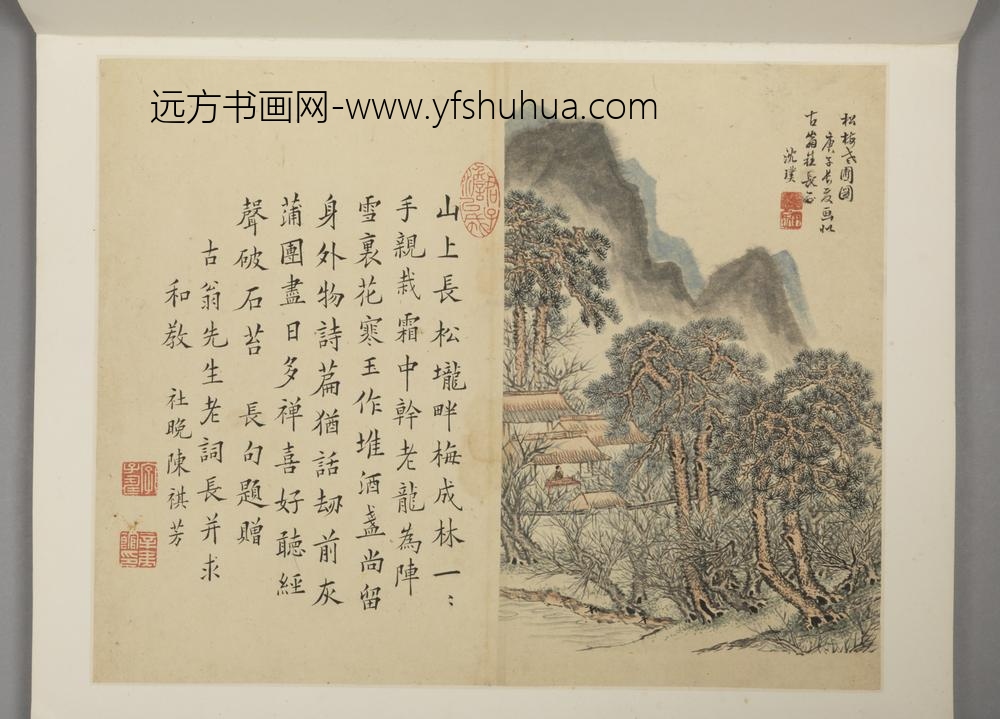 远方书画网-www.yfshuhua.com
松梅老圃圖
庚子長夏画似
古翁社長正
沈璞
山上長松壠畔梅成林一〻
手親栽霜中幹老龍為陣
雪裏花寒玉作堆酒盞尚留
身外物詩篇猶話劫前灰
蒲團盡日多禅喜好聽經
聲破石苔 長句題贈
古翁先生老詞長并求
和教 社晩陳祺芳